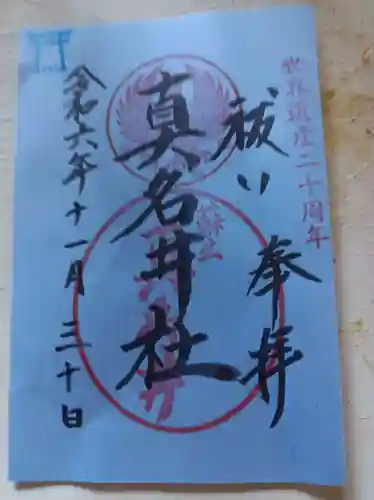 世界遺産二十周年
奉拝
祓い
真名井社
蘇土
令和六年十一月三十日